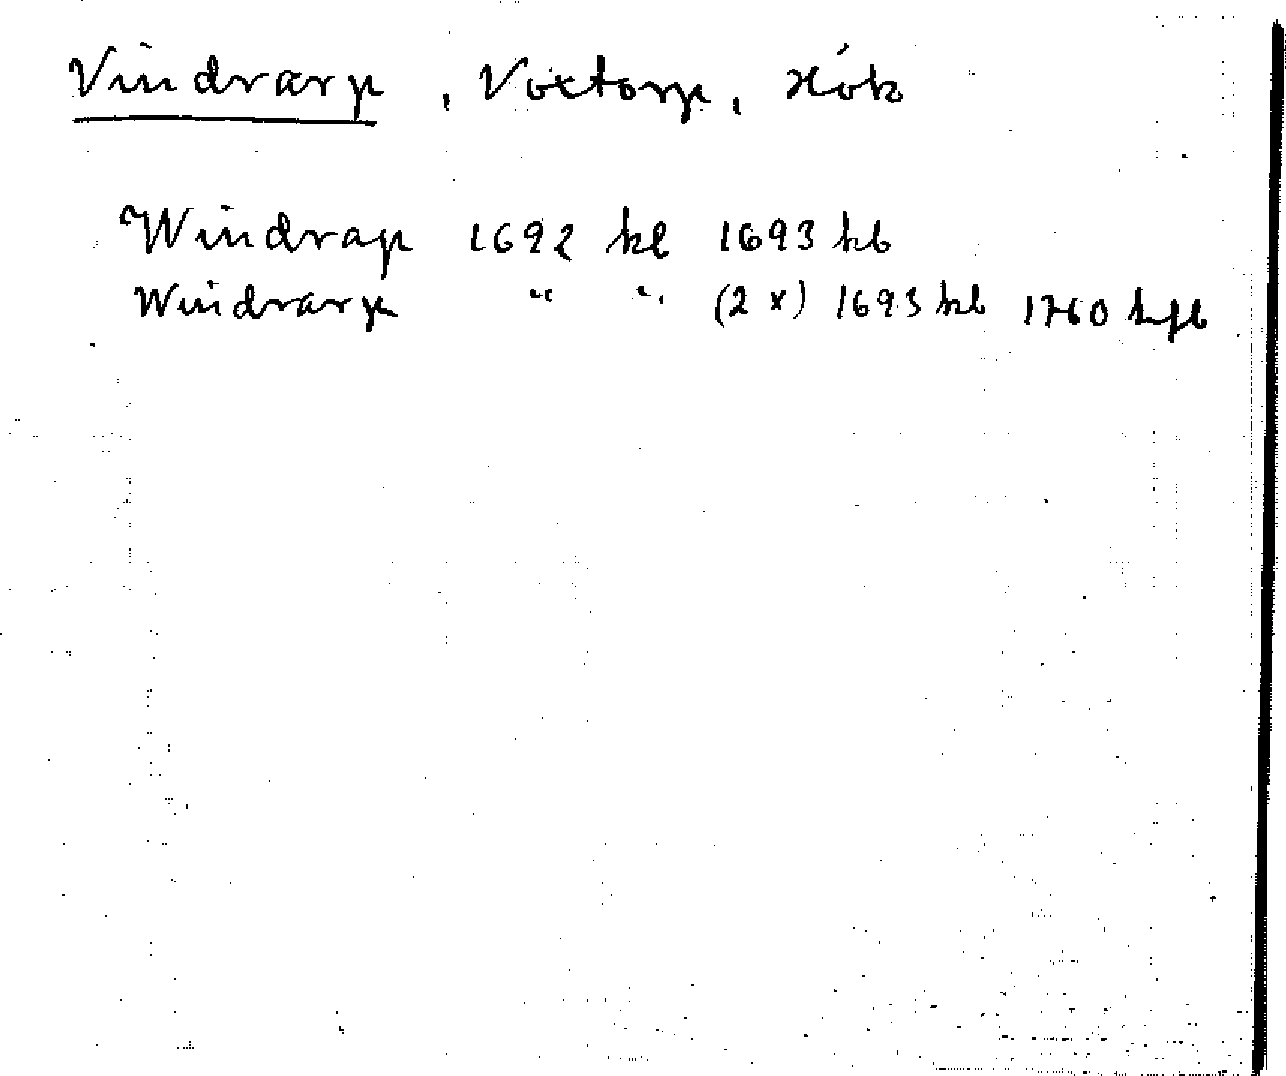 Vindrarp, Voxtorp, Hök
Windrap 1692 kl 1693 kb
Windrarp " " (2 x) 1693 kb 1760 hfl